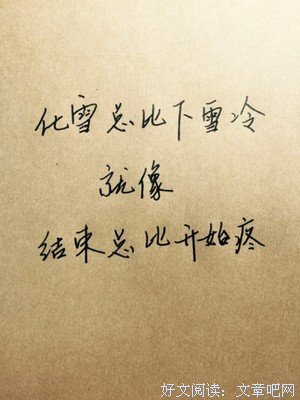 化雪总比下雪冷
就像
结束总比开始疼
好文阅读：文章吧网